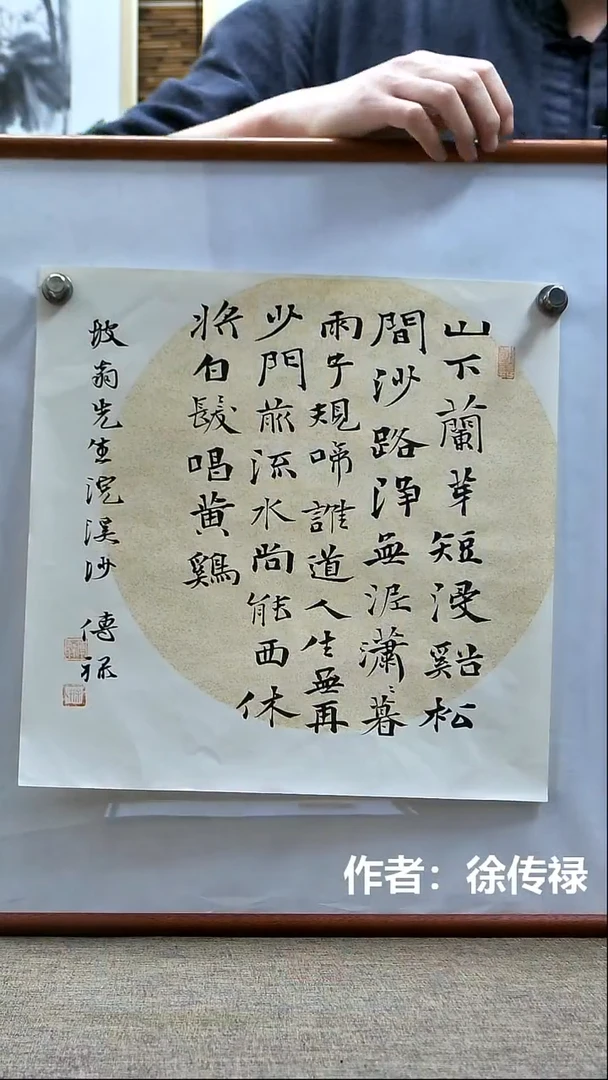 山下蘭芽短浸谿松
間沙路淨無泥瀟〻暮
雨子規啼誰道人生無再
少門前流水尚能西休
將白髮唱黃鷄
坡翁先生浣溪沙 傳祿
作者：徐传禄